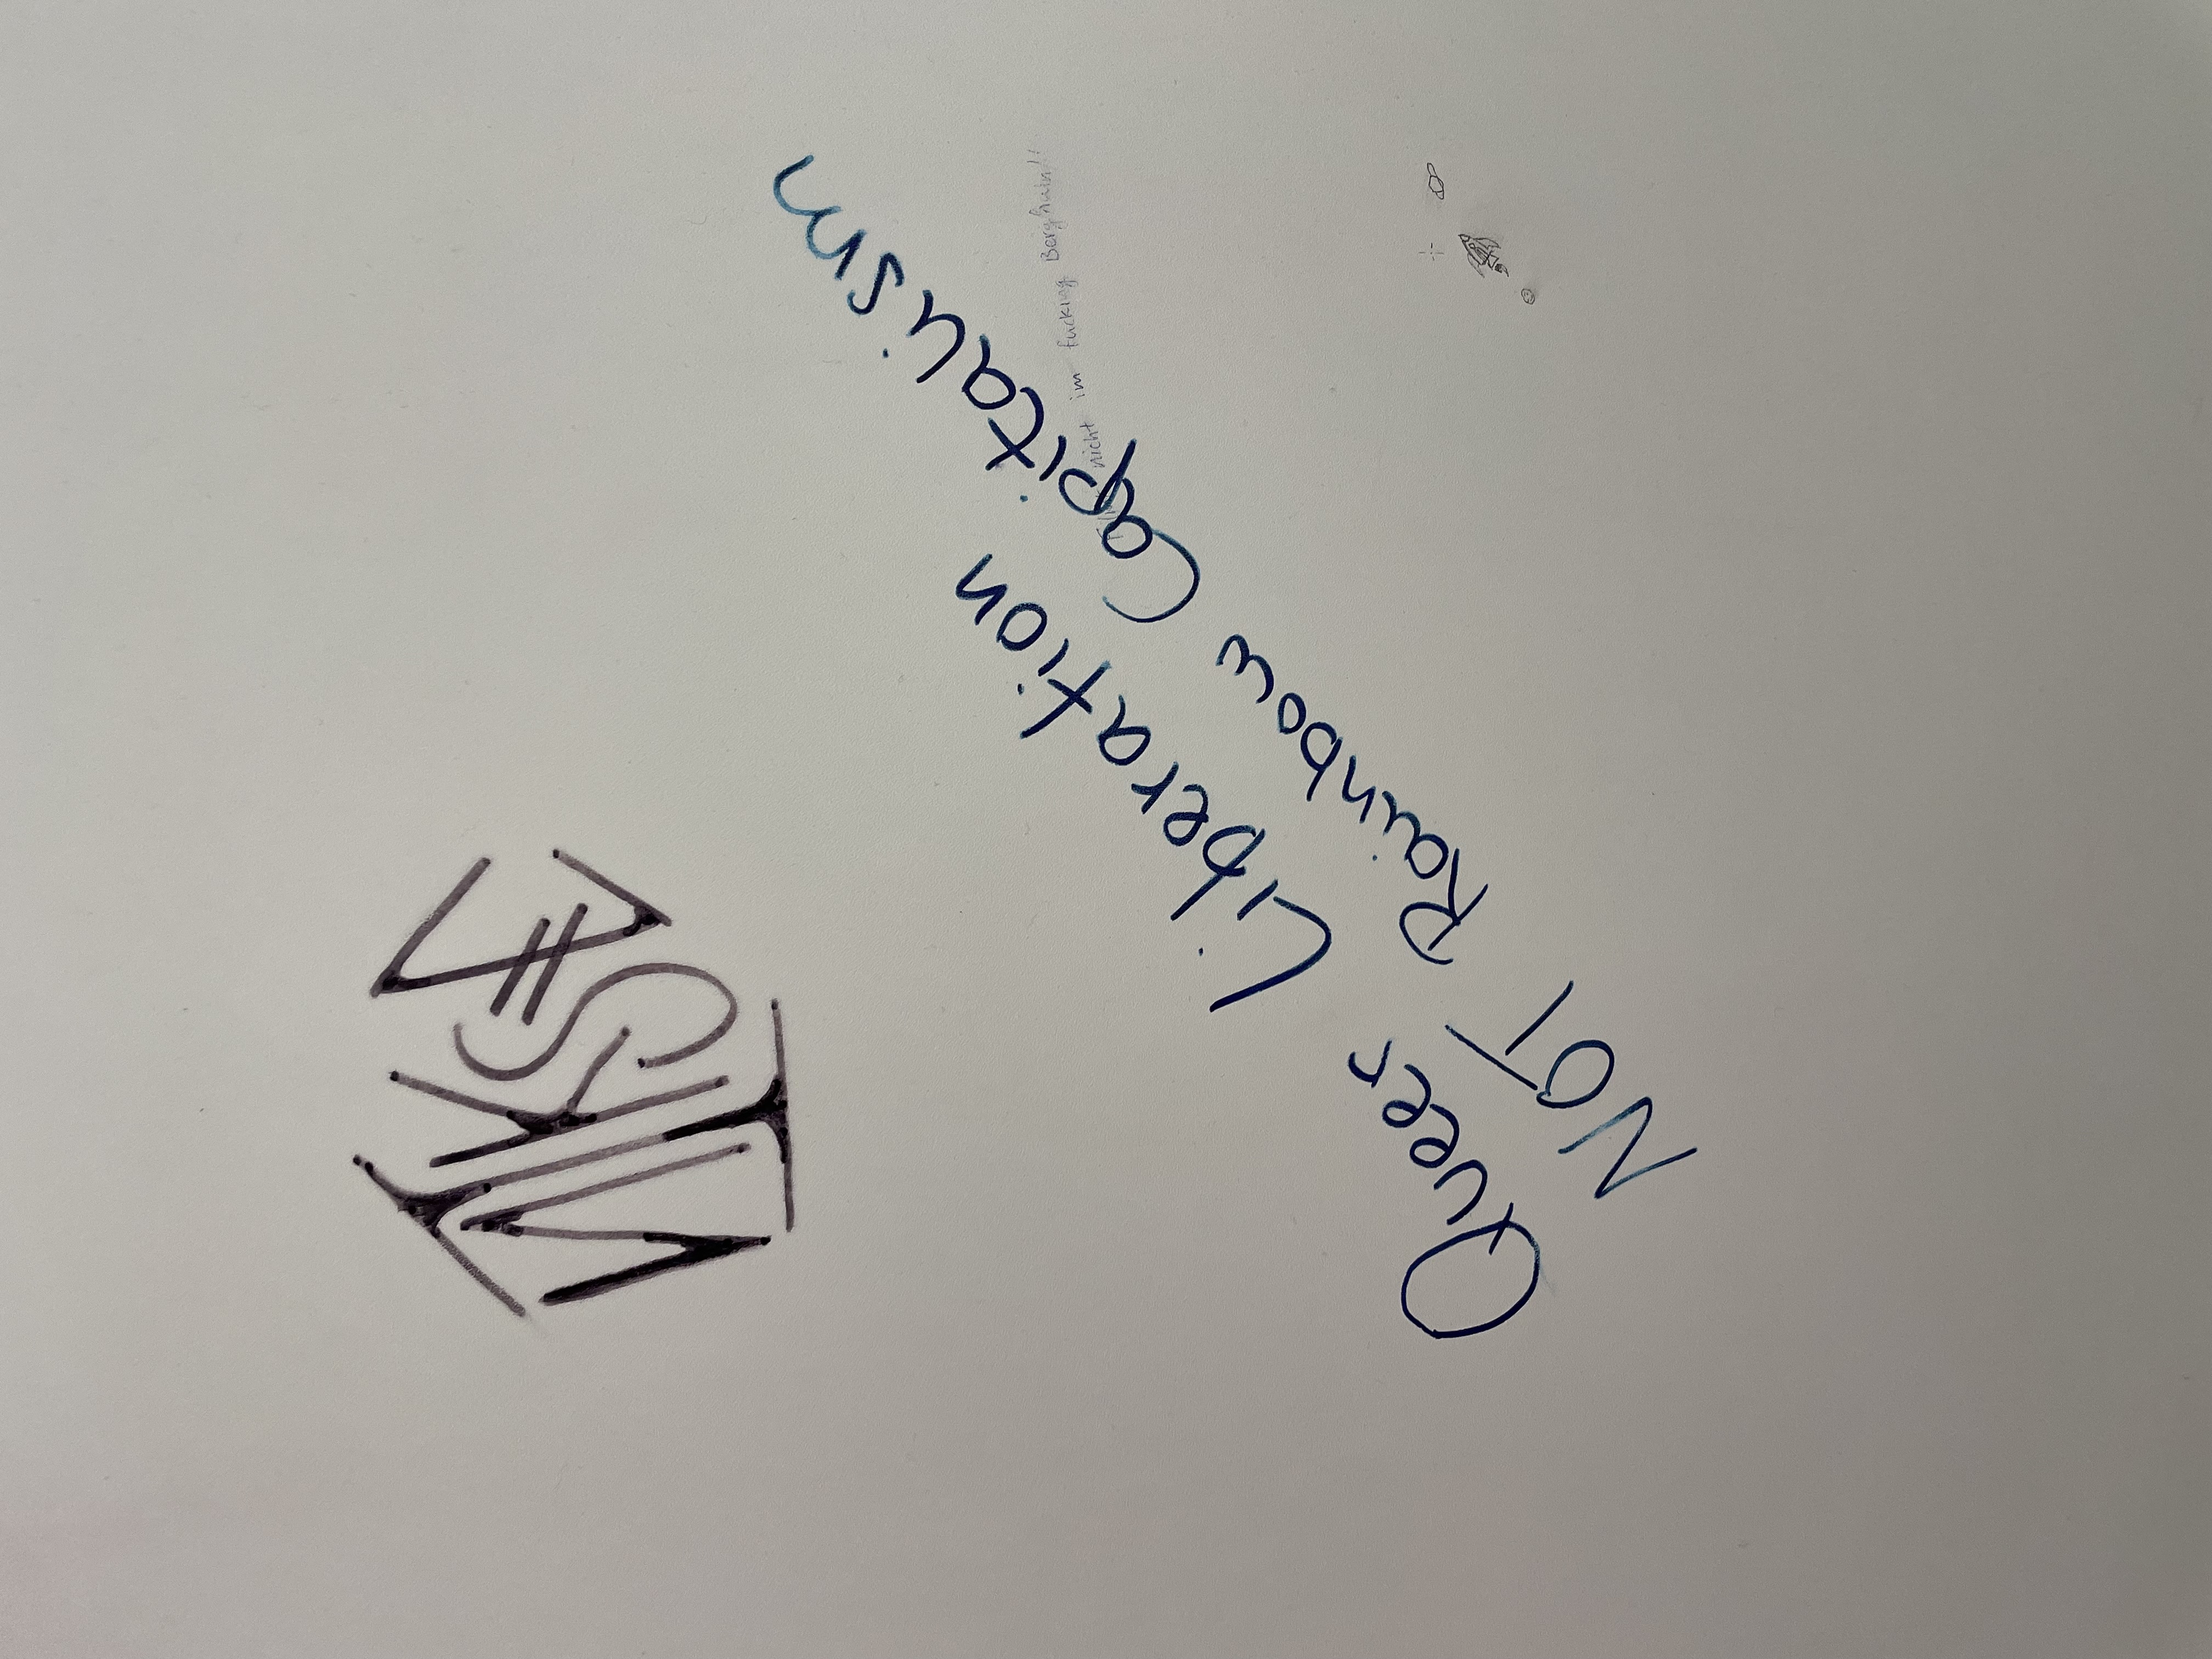 NIKSE
Queer Liberation
NOT Rainbow Capitalism
nicht im fucking Berghain!!